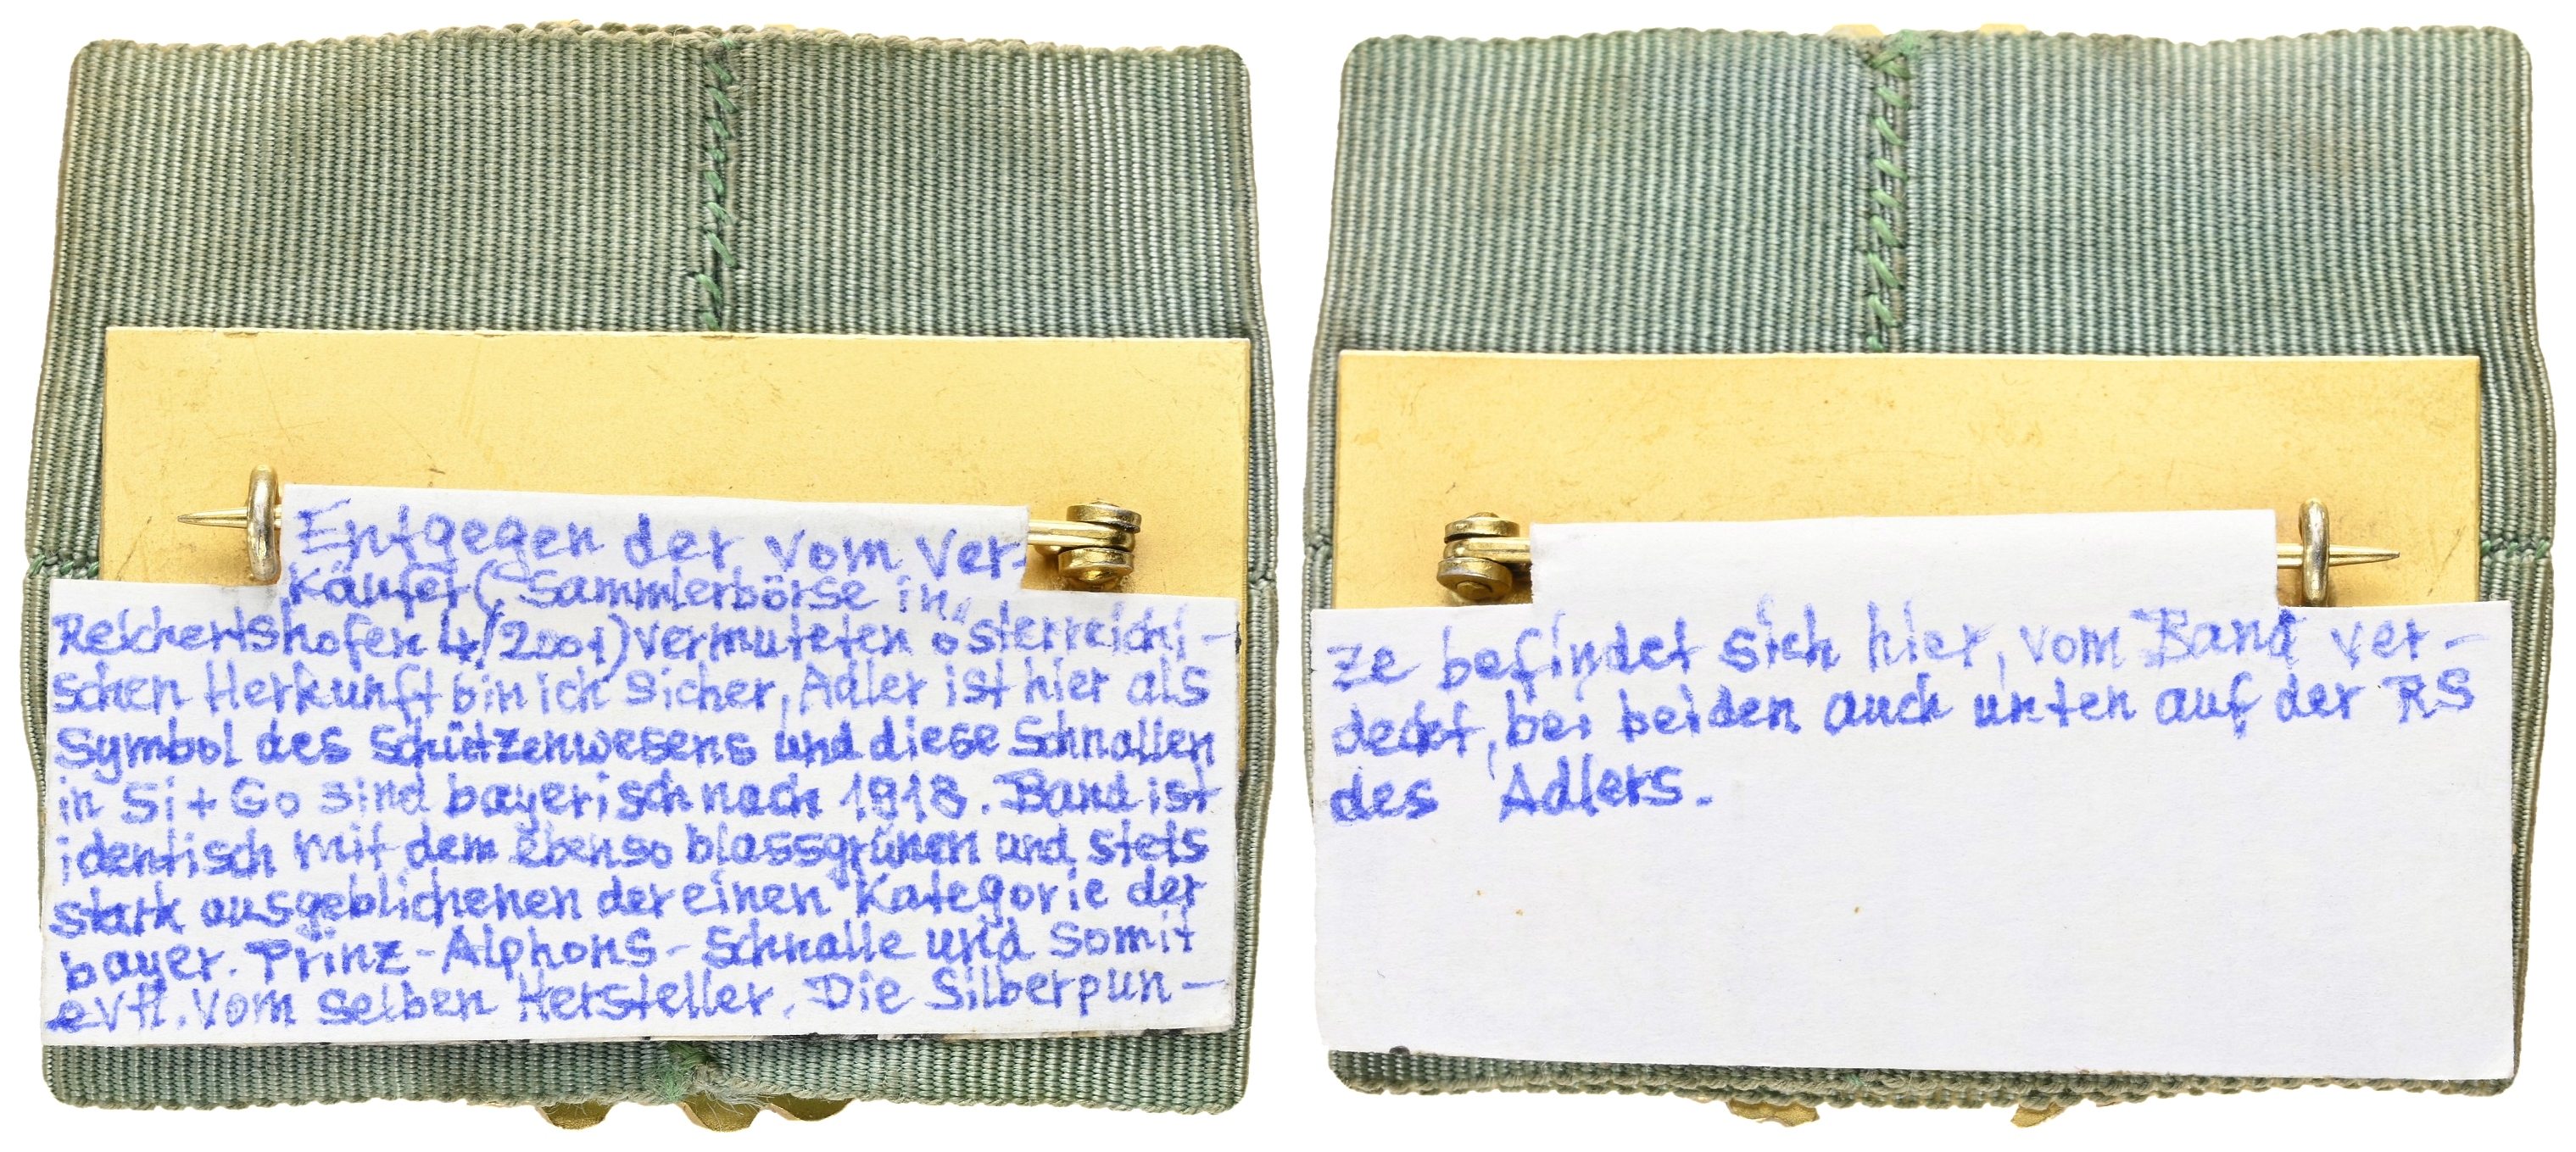 Entgegen der vom Ver-
käufer (Sammlerbörse in
Reichertshofen 4/2001) vermuteten österreichi-
schen Herkunft bin ich sicher, Adler ist hier als
Symbol des Schützenwesens und diese Schnallen
in Si + Go sind bayerisch nach 1918. Band ist
identisch mit dem ebenso blassgrünen und stets
stark ausgeblichenen der einen Kategorie der
bayer. Prinz-Alphons-Schnalle und somit
evtl. vom selben Hersteller. Die Silberpun-
ze befindet sich hier, vom Band ver-
deckt, bei beiden auch unten auf der RS
des Adlers.